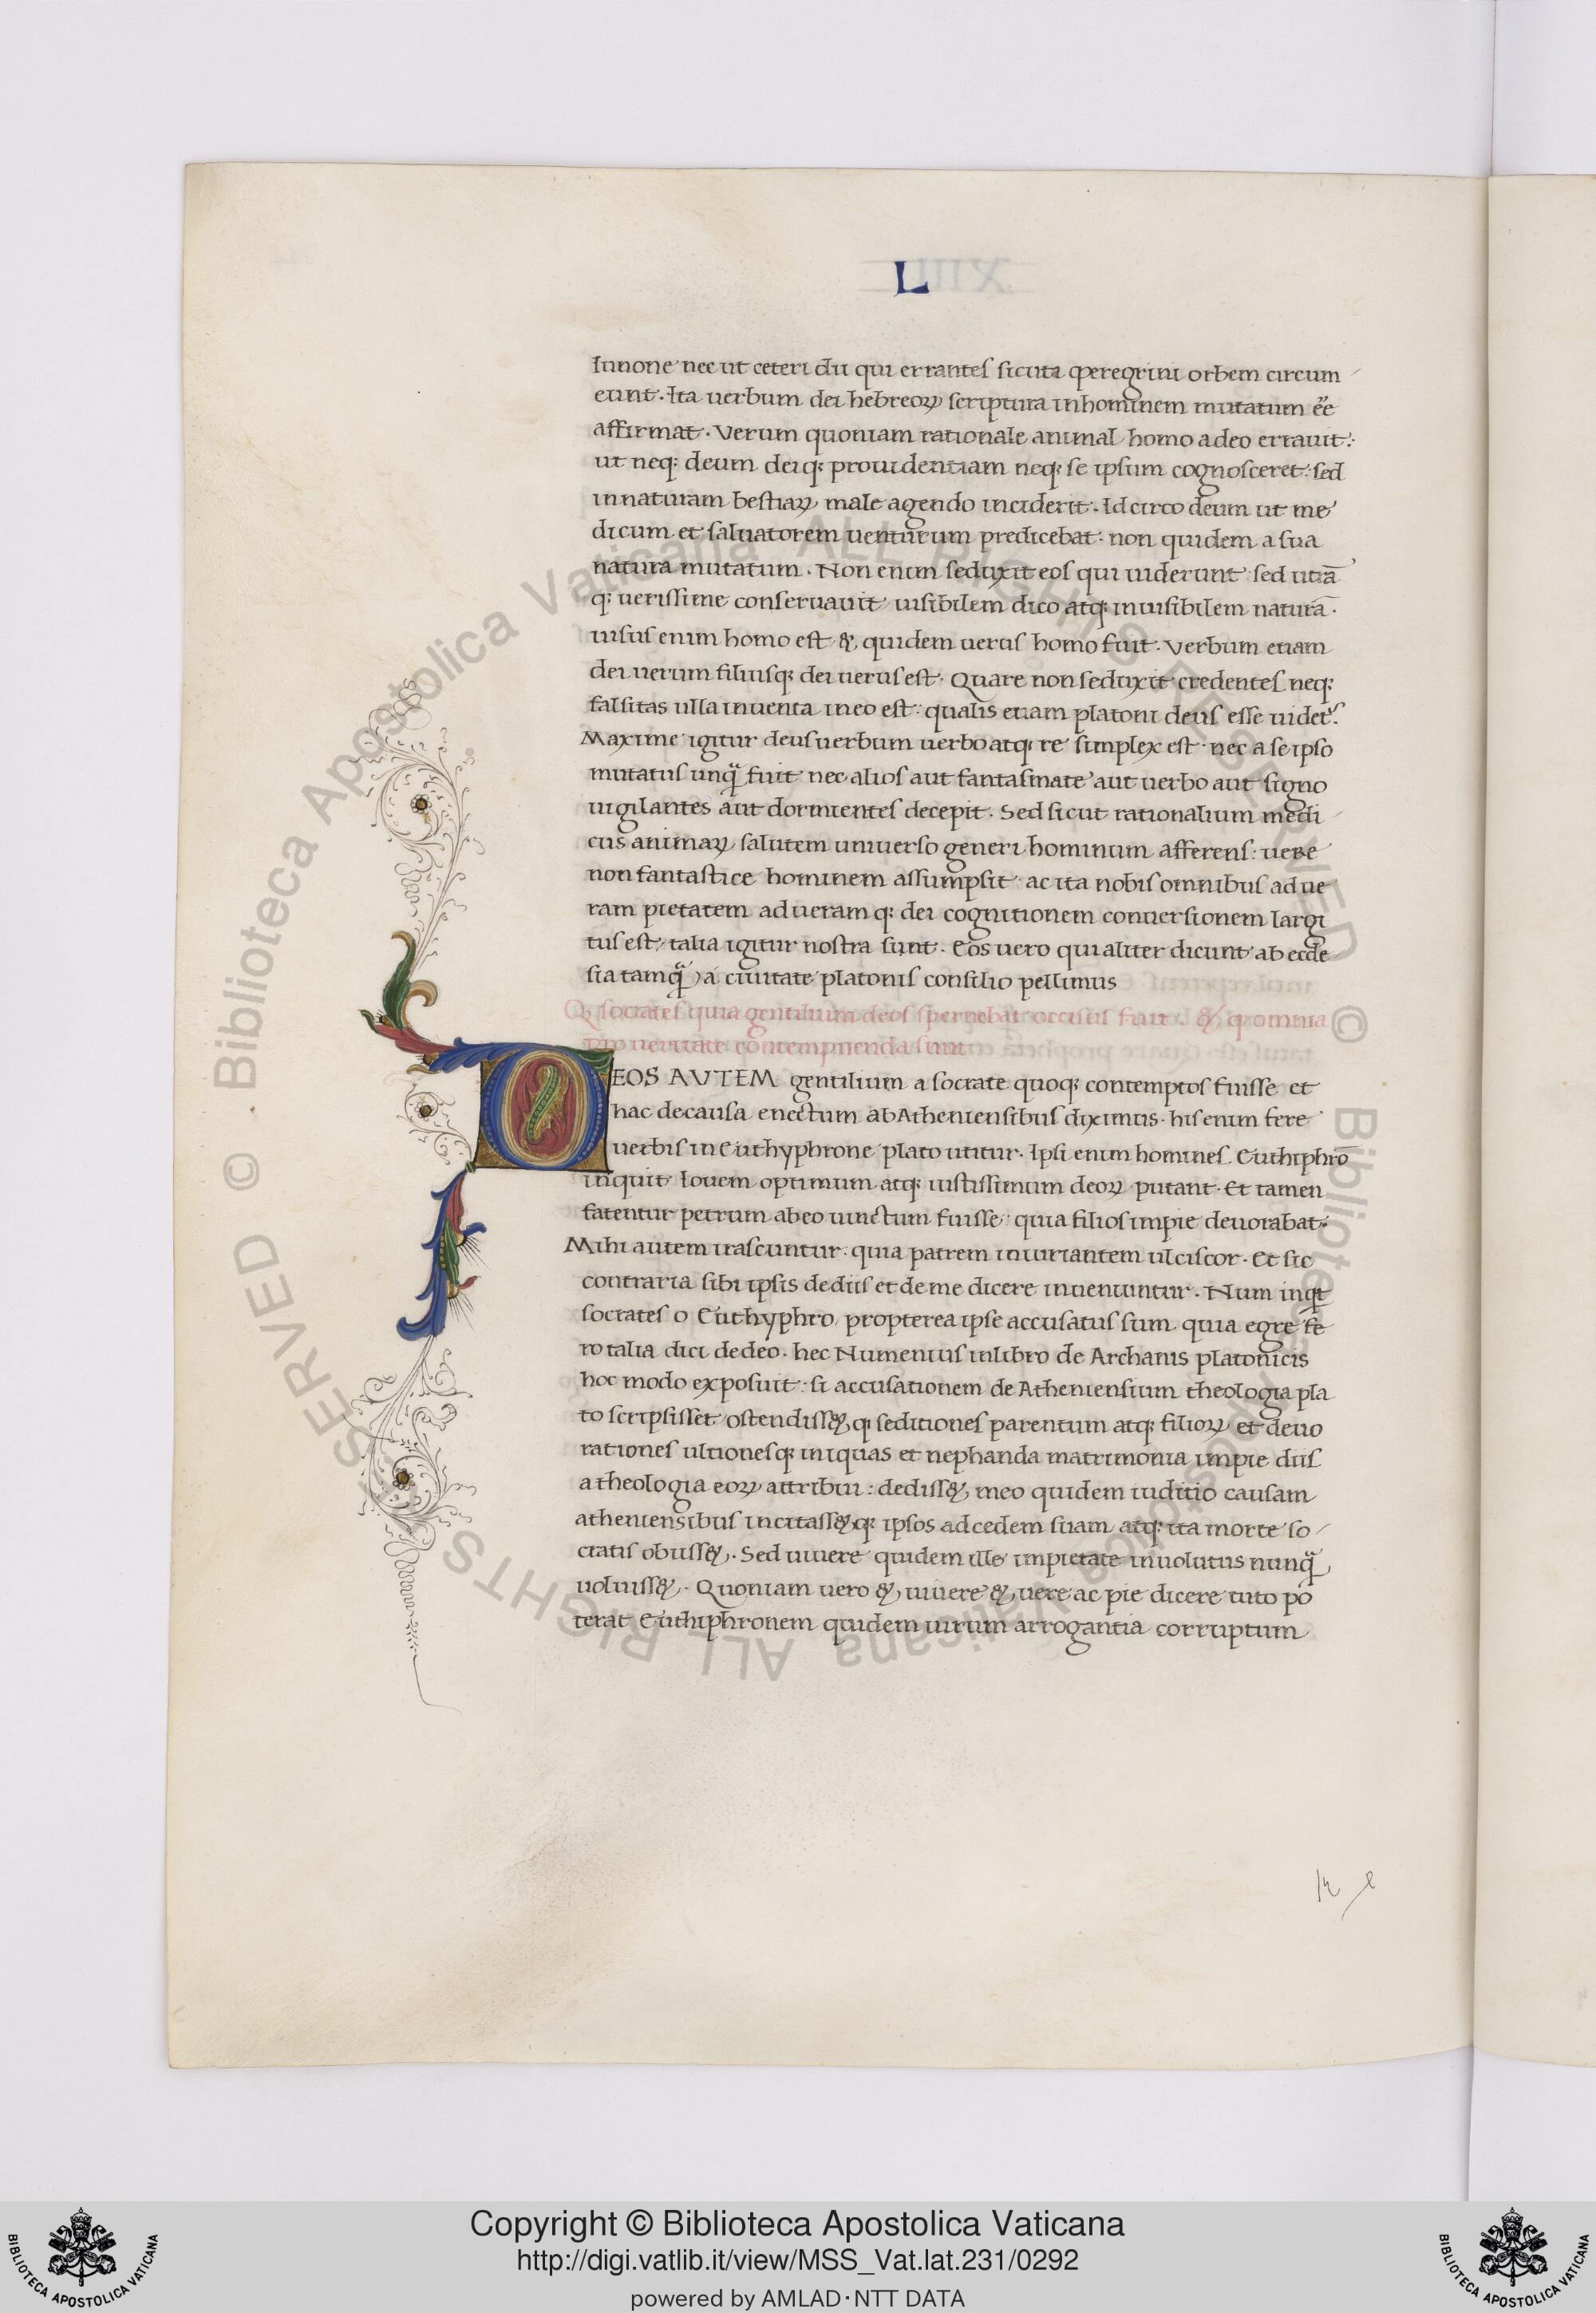 L
Iunone nec ut ceteri dii qui errantes sicuti peregrini orbem circum
eunt. Ita uerbum dei hebreoꝝ scriptura inhominem mutatum eē
affirmat. Verum quoniam rationale animal homo adeo errauit:
ut neqꝫ deum deiqꝫ prouidentiam neqꝫ se ipsum cognosceret: sed
innaturam bestiaꝝ male agendo inciderit. Idcirco deum ut me
dicum et saluatorem uenturum predicebat: non quidem a sua
natura mutatum. Non enim seduxit eos qui uiderunt: sed utrā
qꝫ uerissime conseruauit uisibilem dico atqꝫ inuisibilem naturā.
uisus enim homo est & quidem uerus homo fuit. Verbum etiam
dei uerum filiusqꝫ dei uerus est. Quare non seduxit credentes neqꝫ
falsitas ulla inuenta ineo est: qualis etiam platoni deus esse uidet᷑.
Maxime igitur deus uerbum uerbo atqꝫ re simplex est. nec a se ipso
mutatus unq̄ fuit nec alios aut fantasmate aut uerbo aut signo
uigilantes aut dormientes decepit. Sed sicut rationalium medi
cus animaꝝ salutem uniuerso generi hominum afferens: uere
non fantastice hominem assumpsit: ac ita nobis omnibus ad ue
ram pietatem ad ueramqꝫ dei cognitionem conuersionem largi
tus est, talia igitur nostra sunt. Eos uero qui aliter dicunt ab eccle
sia tamq̄ a ciuitate platonis consilio pellimus
Q socrates quia gentilium deos spernebat occisus fuit. & q omnia
pro ueritate contempnenda sunt
DEOS AVTEM gentilium a socrate quoqꝫ contemptos fuisse et
hac decausa enectum ab Atheniensibus diximus. his enim fere
uerbis in Euthyphrone plato utitur. Ipsi enim homines Euthiphrō
inquit Iouem optimum atqꝫ iustissimum deoꝝ putant. Et tamen
fatentur petrum abeo uinctum fuisse: quia filios impie deuorabat.
Mihi autem irascuntur: quia patrem iniuriantem ulciscor. Et sic
contraria sibi ipsis dediis et de me dicere inueniuntur. Num inq̄t
socrates o Euthyphro, propterea ipse accusatus sum quia egre fe
ro talia dici dedeo. hec Numenius inlibro de Archanis platonicis
hoc modo exposuit: si accusationem de Atheniensium theologia pla
to scripsisset ostendiss& qꝫ seditiones parentum atqꝫ filioꝝ et deuo
rationes ultionesqꝫ iniquas et nephanda matrimonia impie diis
a theologia eoꝝ attribui: dediss& meo quidem iuditio causam
atheniensibus incitass&qꝫ ipsos ad cedem suam atqꝫ ita morte so
cratis obiiss&. Sed uiuere quidem ille impietate inuolutus nunq̄
uoluiss&. Quoniam uero & uiuere & uere ac pie dicere tuto po
terat Euthiphronem quidem uirum arrogantia corruptum
© Biblioteca Apostolica Vaticana ALL RIGHTS RESERVED
© Biblioteca Apostolica Vaticana ALL RIGHTS RESERVED
Copyright © Biblioteca Apostolica Vaticana
http://digi.vatlib.it/view/MSS_Vat.lat.231/0292
powered by AMLAD·NTT DATA
BIBLIOTECA APOSTOLICA VATICANA
BIBLIOTECA APOSTOLICA VATICANA